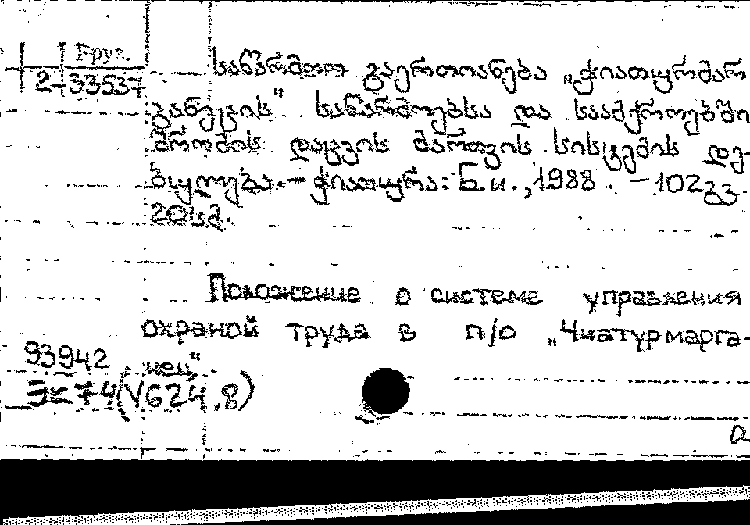 Груз.
2-33537
საწარმოო გაერთიანება „ჭიათურმარ
განეცის" საწარმოებსა და საამქროებში
შრომის დაცვის მართვის სისტემის დე-
ბულება.– ჭიათურა: Б.и., 1988. – 102 გვ.
20 სმ.
Положение о системе управления
охраной труда в п/о „Чиатурмарга-
93942 нец"
3Σ74(V624.8)